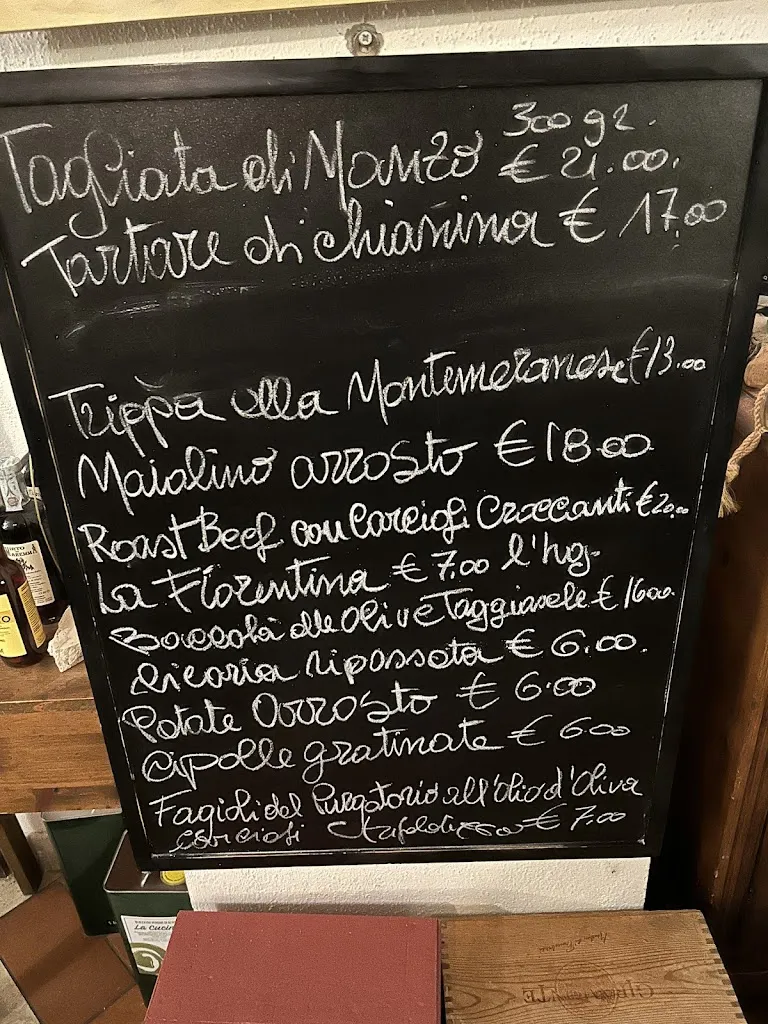 300 gr.
Tagliata di Manzo € 21.00.
Tartare di chianina € 17,00
Trippa alla Montemeranese €13.00
Maialino arrosto € 18.00
Roast Beef con Carciofi Croccanti €20.00
La Fiorentina € 7.00 l'hg.
Baccalà alle Olive Taggiasche € 16.00.
Cicoria ripassata € 6.00.
Patate Arrosto € 6.00
Cipolle gratinate € 6.00
Fagioli del Purgatorio all'olio d'Oliva
Carciofi € 7.00
La Cucin